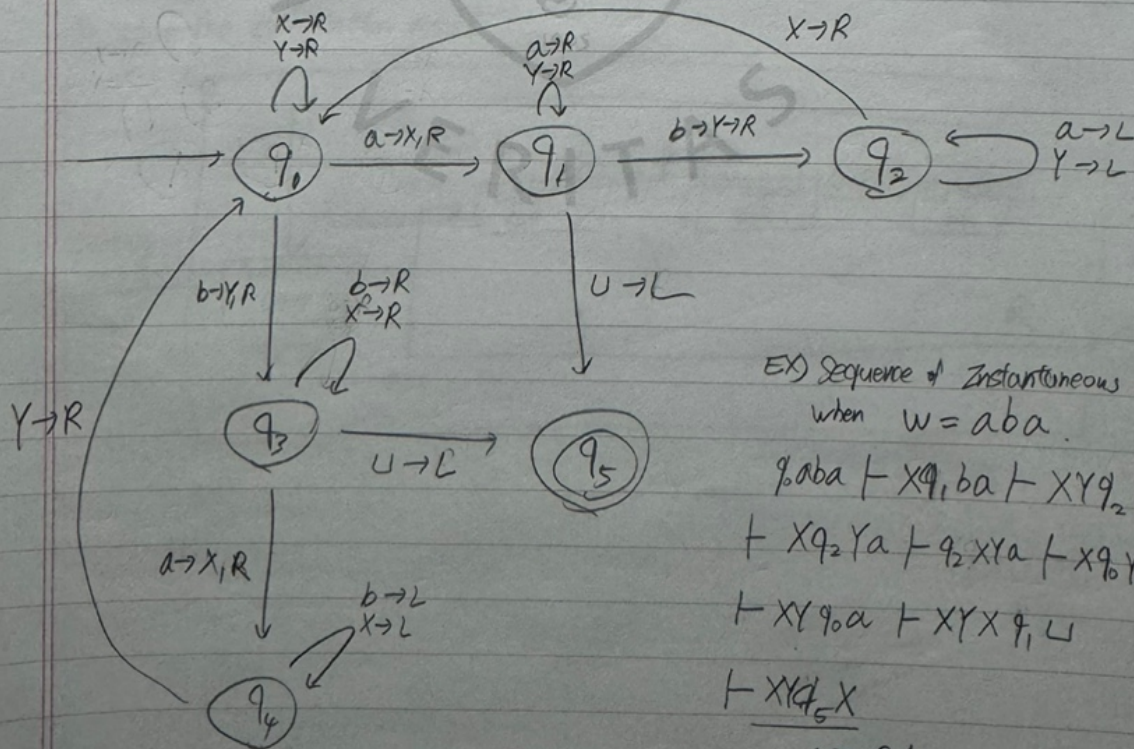 X→R
Y→R
a→R
Y→R
X→R
VERITAS
q₀
a→X,R
q₁
b→Y→R
q₂
a→L
Y→L
b→Y,R
b→R
X→R
⊔→L
Y→R
q₃
⊔→L
q₅
a→X,R
b→L
X→L
q₄
EX) Sequence of Instantaneous
when w = aba.
q₀aba ⊢ Xq₁ba ⊢ XYq₂
⊢ Xq₂Ya ⊢ q₂XYa ⊢ Xq₀Y
⊢ XYq₀a ⊢ XYXq₁⊔
⊢ XYq₅X